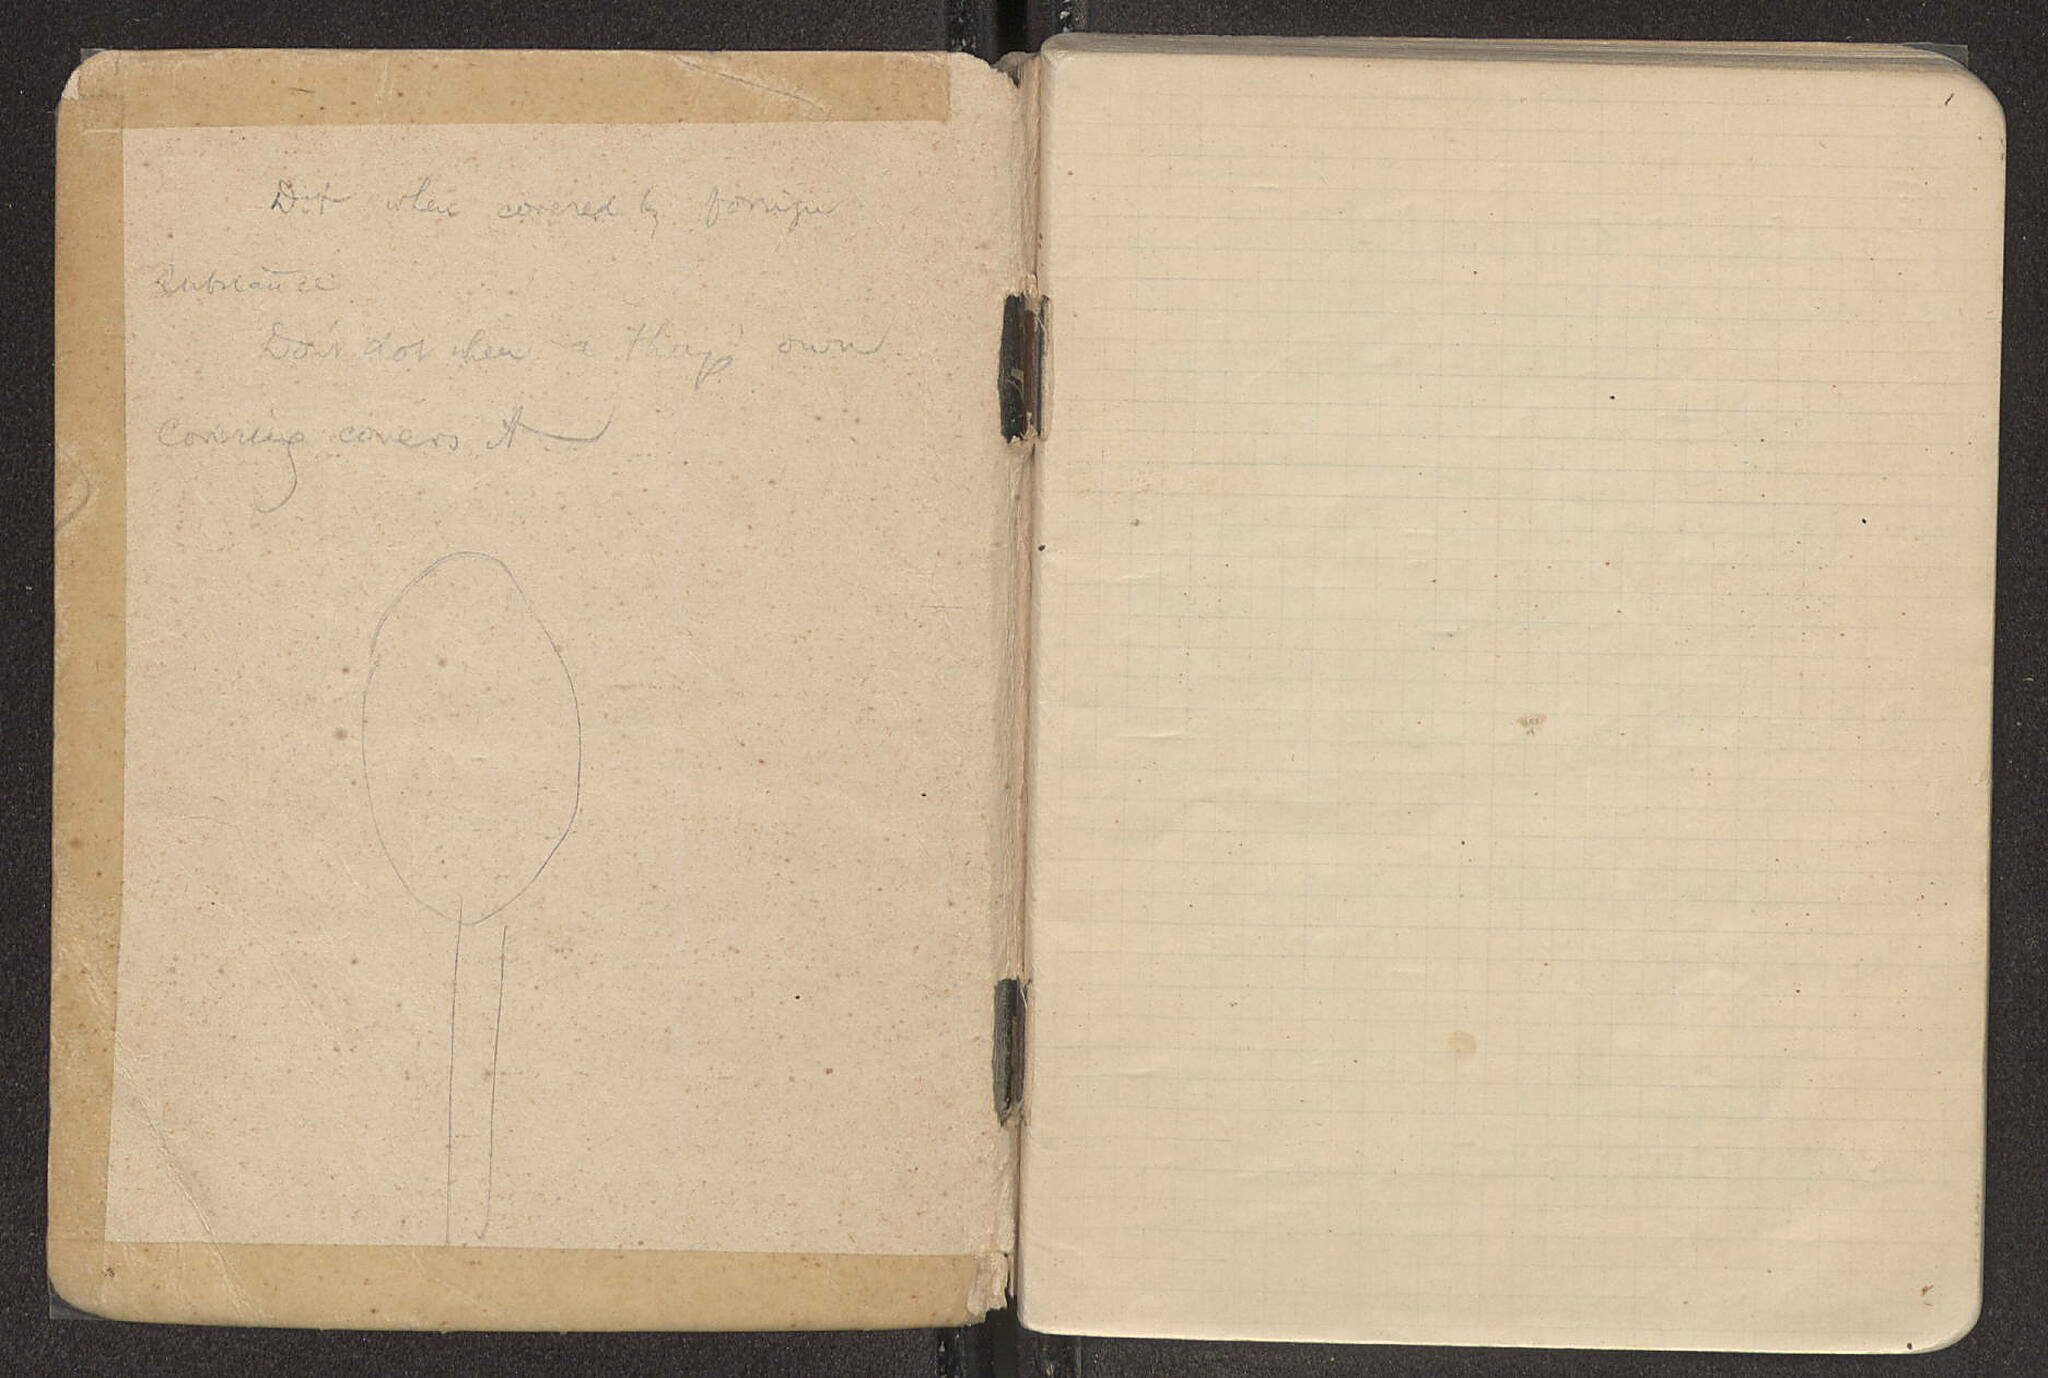 Dot when covered by foreign
substance
Don't dot when a thing's own
covering covers it